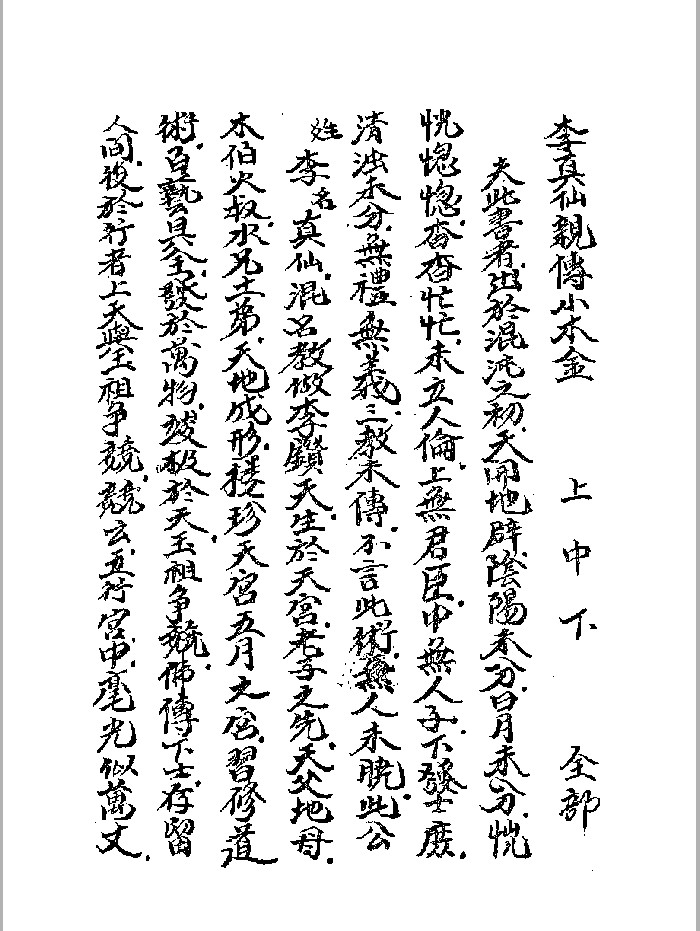 李真仙親傳小本金 上中下 全部
夫此書者出於混沌之初天開地辟陰陽未分日月未分恍
恍惚惚杳杳忙忙未立人倫上無君臣中無人子下發士庶
清濁未分無禮無義三教未傳不言此術無人未曉此公
姓李名真仙混名教做李鑽天生於天宮老子之先天父地母
木伯火叔水兄土弟天地成形 珍天宮五月之宮習修道
術百藝具全發於萬物 极於天玉祖争競佛傳下士存留
人间後於行者上天與玉祖争競競玄五行宮中毫光似萬丈